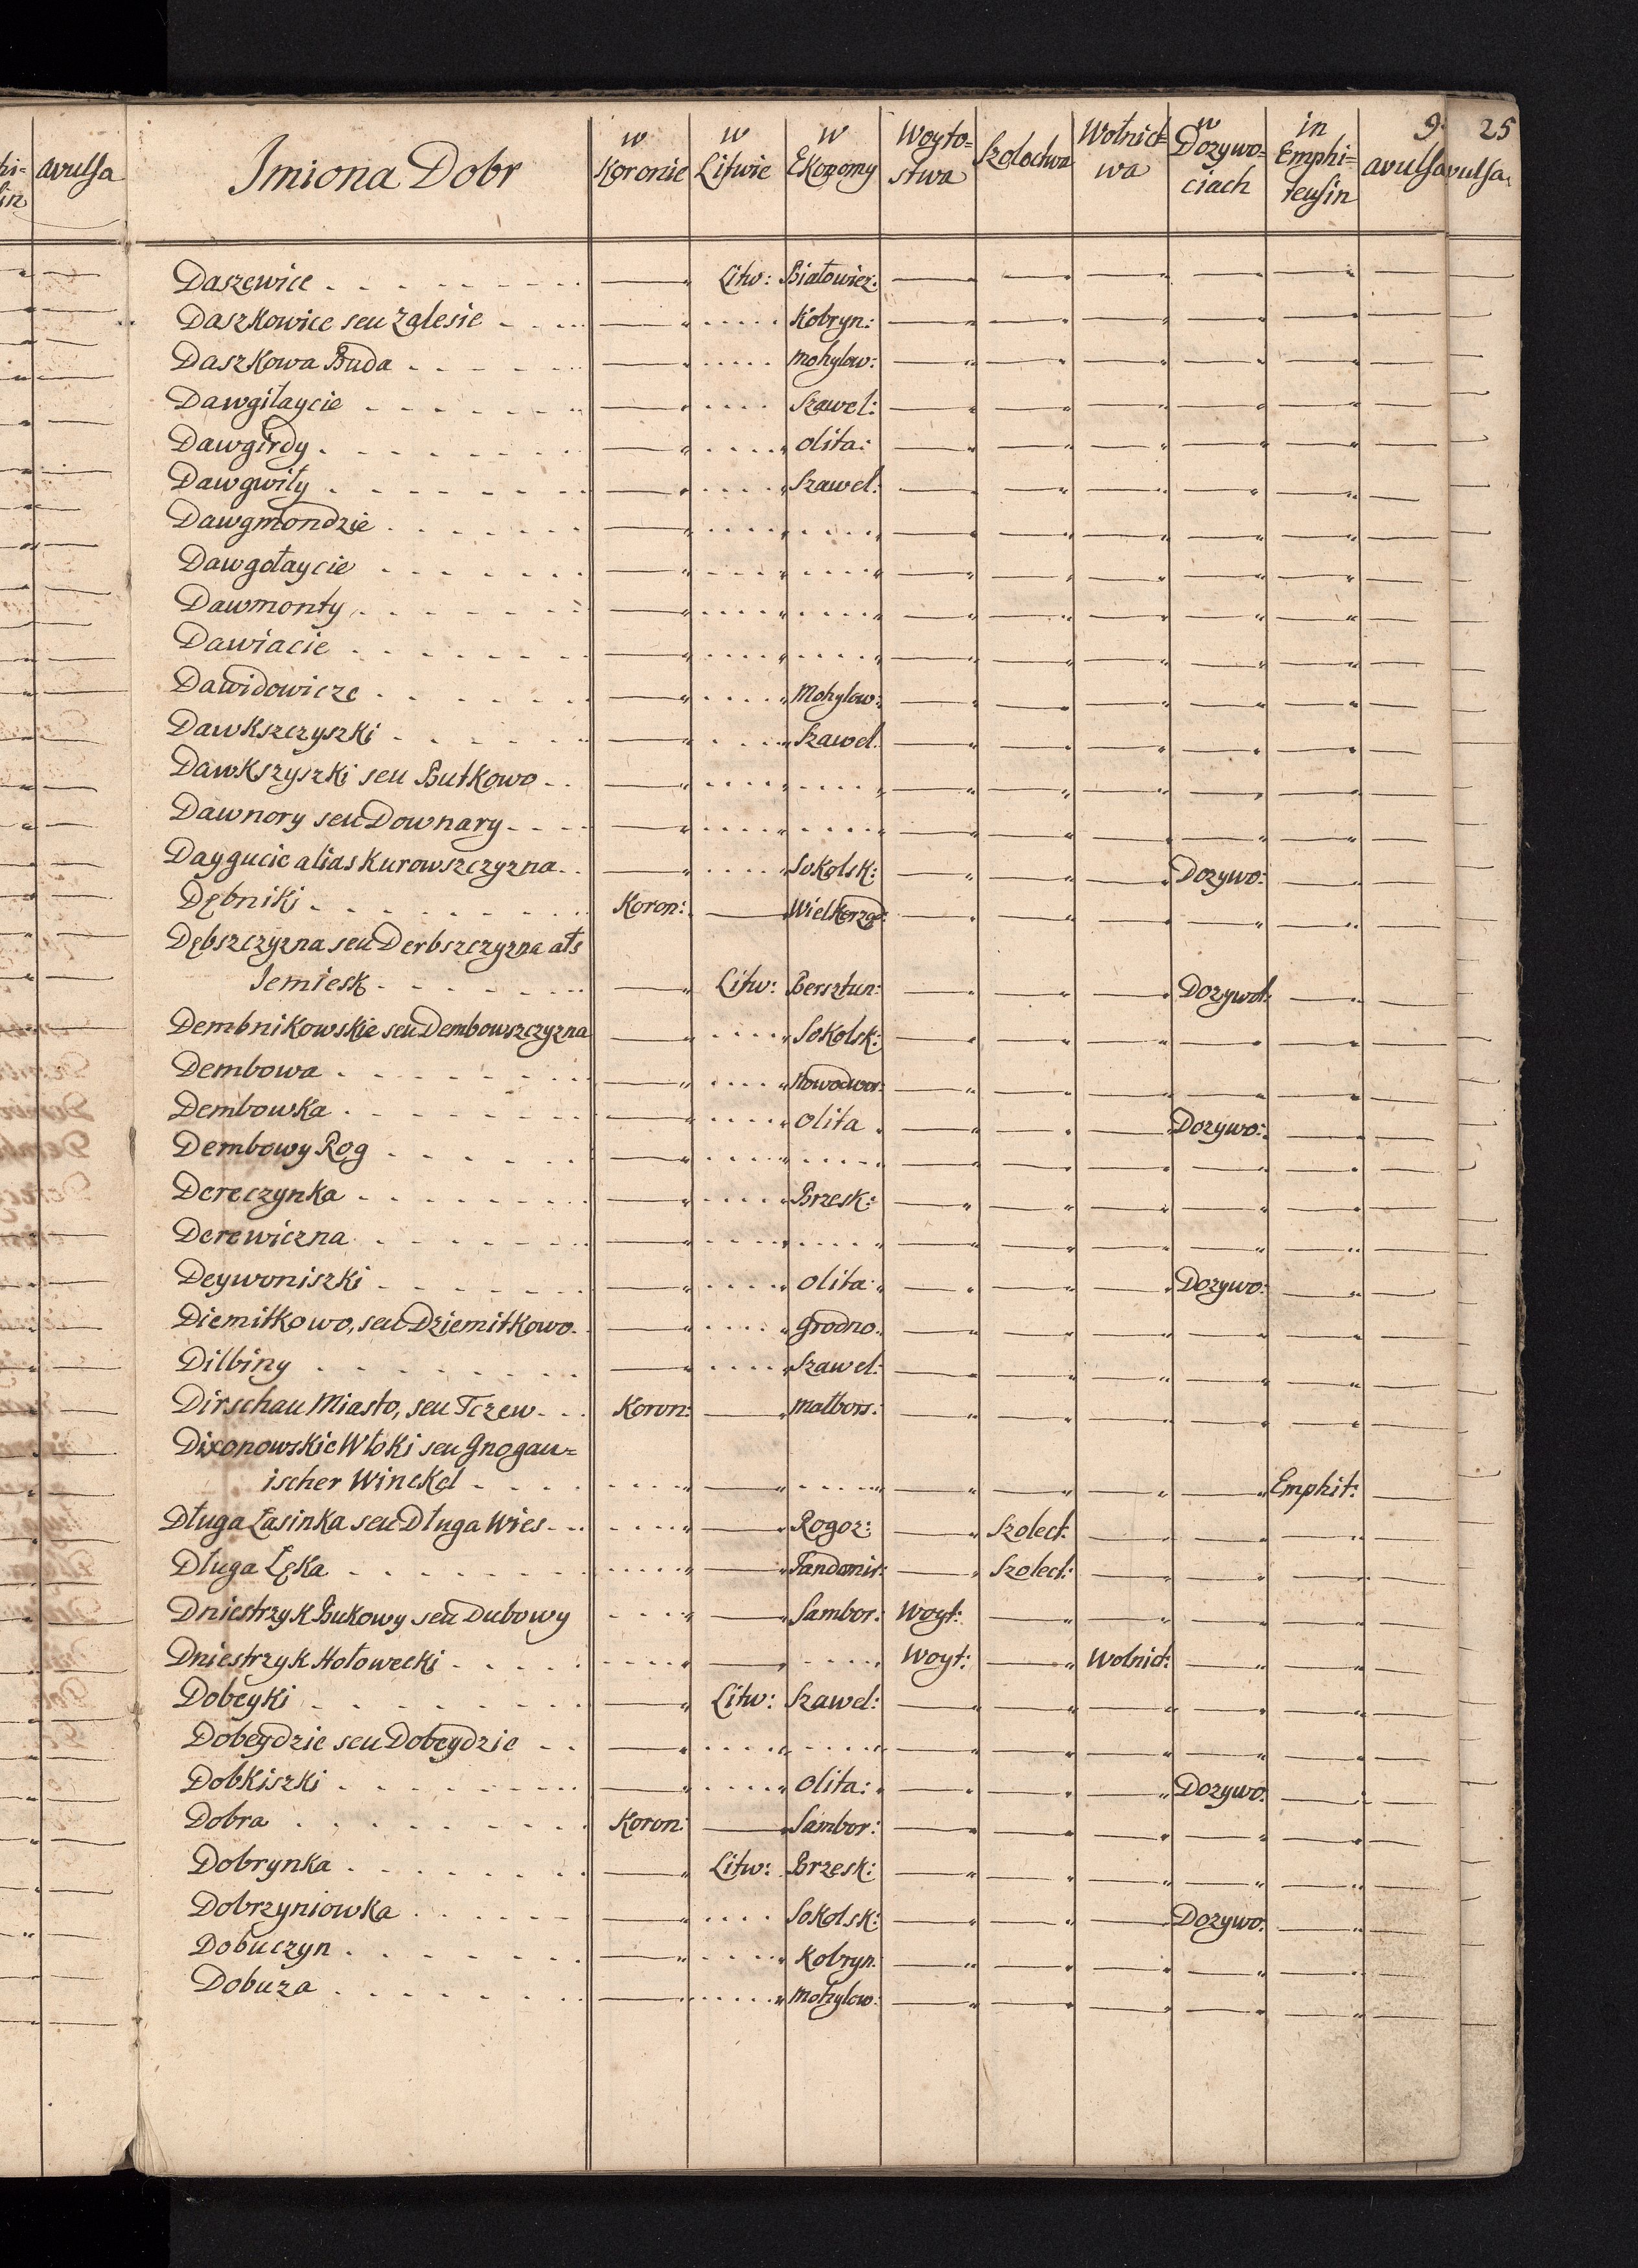 his=
in
avulsa
9. 25
Imiona Dobr | w Koronie | w Litwie | w Ekonomy | Woyto=stwa | Szolectwa | Wolnict=wa | w Dozywo=ciach | in Emphi=teusin | avulsa | vulsa
Daszewice . . . . . . . . — Litw: Białowież: — — — — — —
Daszkowice seu Zalesie . . . . — . . . . . Kobryn: — — — — — —
Daszkowa Buda . . . . . . — . . . . . Mohylow: — — — — — —
Dawgiłaycie . . . . . . . — . . . . Szawel: — — — — — —
Dawgirdy . . . . . . . . — . . . . Olita: — — — — — —
Dawgwiły . . . . . . . . — . . . . Szawel: — — — — — —
Dawgmondzie . . . . . . — . . . . . . . . . — — — — — —
Dawgołaycie . . . . . . . — . . . . . . . . . — — — — — —
Dawmonty . . . . . . . — . . . . . . . . . — — — — — —
Dawiacie . . . . . . . . — . . . . . . . . . — — — — — —
Dawidowicze . . . . . . . — . . . . Mohylow: — — — — — —
Dawkszczyszki . . . . . . — . . . . Szawel. — — — — — —
Dawkszyszki seu Butkowo . . — . . . . . . . . . — — — — — —
Dawnory seu Downary . . . . — . . . . . . . . . — — — — — —
Daygucie alias Kurowszczyzna . . — . . . . Sokolsk: — — — Dozywo: — —
Dębniki . . . . . . . . . Koron: — Wielkorząd: — — — — — —
Dębszczyzna seu Derbszczyzna ałs
Jemiesk . . . . . . . — Litw: Bersztun: — — — Dozywot: — —
Dembnikowskie seu Dembowszczyzna — . . . . Sokolsk: — — — — — —
Dembowa . . . . . . . . — . . . . Nowodwor: — — — — — —
Dembowka . . . . . . . — . . . . Olita — — — Dozywo: — —
Dembowy Rog . . . . . . — . . . . . . . . . — — — — — —
Dereczynka . . . . . . . — . . . . Brzesk: — — — — — —
Derewiczna . . . . . . . — . . . . . . . . . — — — — — —
Deywoniszki . . . . . . . — . . . . Olita: — — — Dozywo: — —
Diemitkowo, seu Dziemitkowo . — . . . . Grodno. — — — — — —
Dilbiny . . . . . . . . — . . . . Szawel: — — — — — —
Dirschau Miasto, seu Tczew . . . Koron: — Malbors: — — — — — —
Dixonowskie Włoki seu Gnogau=
ischer Winckel . . . . . . . . . — . . . . . — — — — Emphit: —
Długa Łasinka seu Długa Wies . . . . . . . — Rogoz: — Szolect: — — — —
Długa Łęka . . . . . . . . . . . . — Sandomir: — Szolect: — — — —
Dniestrzyk Bukowy seu Dubowy . . . . — Sambor: Woyt: — — — — —
Dniestrzyk Hołowecki . . . . . . . . . — . . . . Woyt: — Wolnict: — — —
Dobeyki . . . . . . . . — Litw: Szawel: — — — — — —
Dobeydzie seu Dobeydzie . . — . . . . . . . . . — — — — — —
Dobkiszki . . . . . . . . — . . . . Olita: — — — Dozywo: — —
Dobra . . . . . . . . . Koron: — Sambor: — — — — — —
Dobrynka . . . . . . . — Litw: Brzesk: — — — — — —
Dobrzyniowka . . . . . . — . . . . Sokolsk: — — — Dozywo: — —
Dobuczyn . . . . . . . — . . . . Kobryn: — — — — — —
Dobuza . . . . . . . . — . . . . Mohylow: — — — — — —